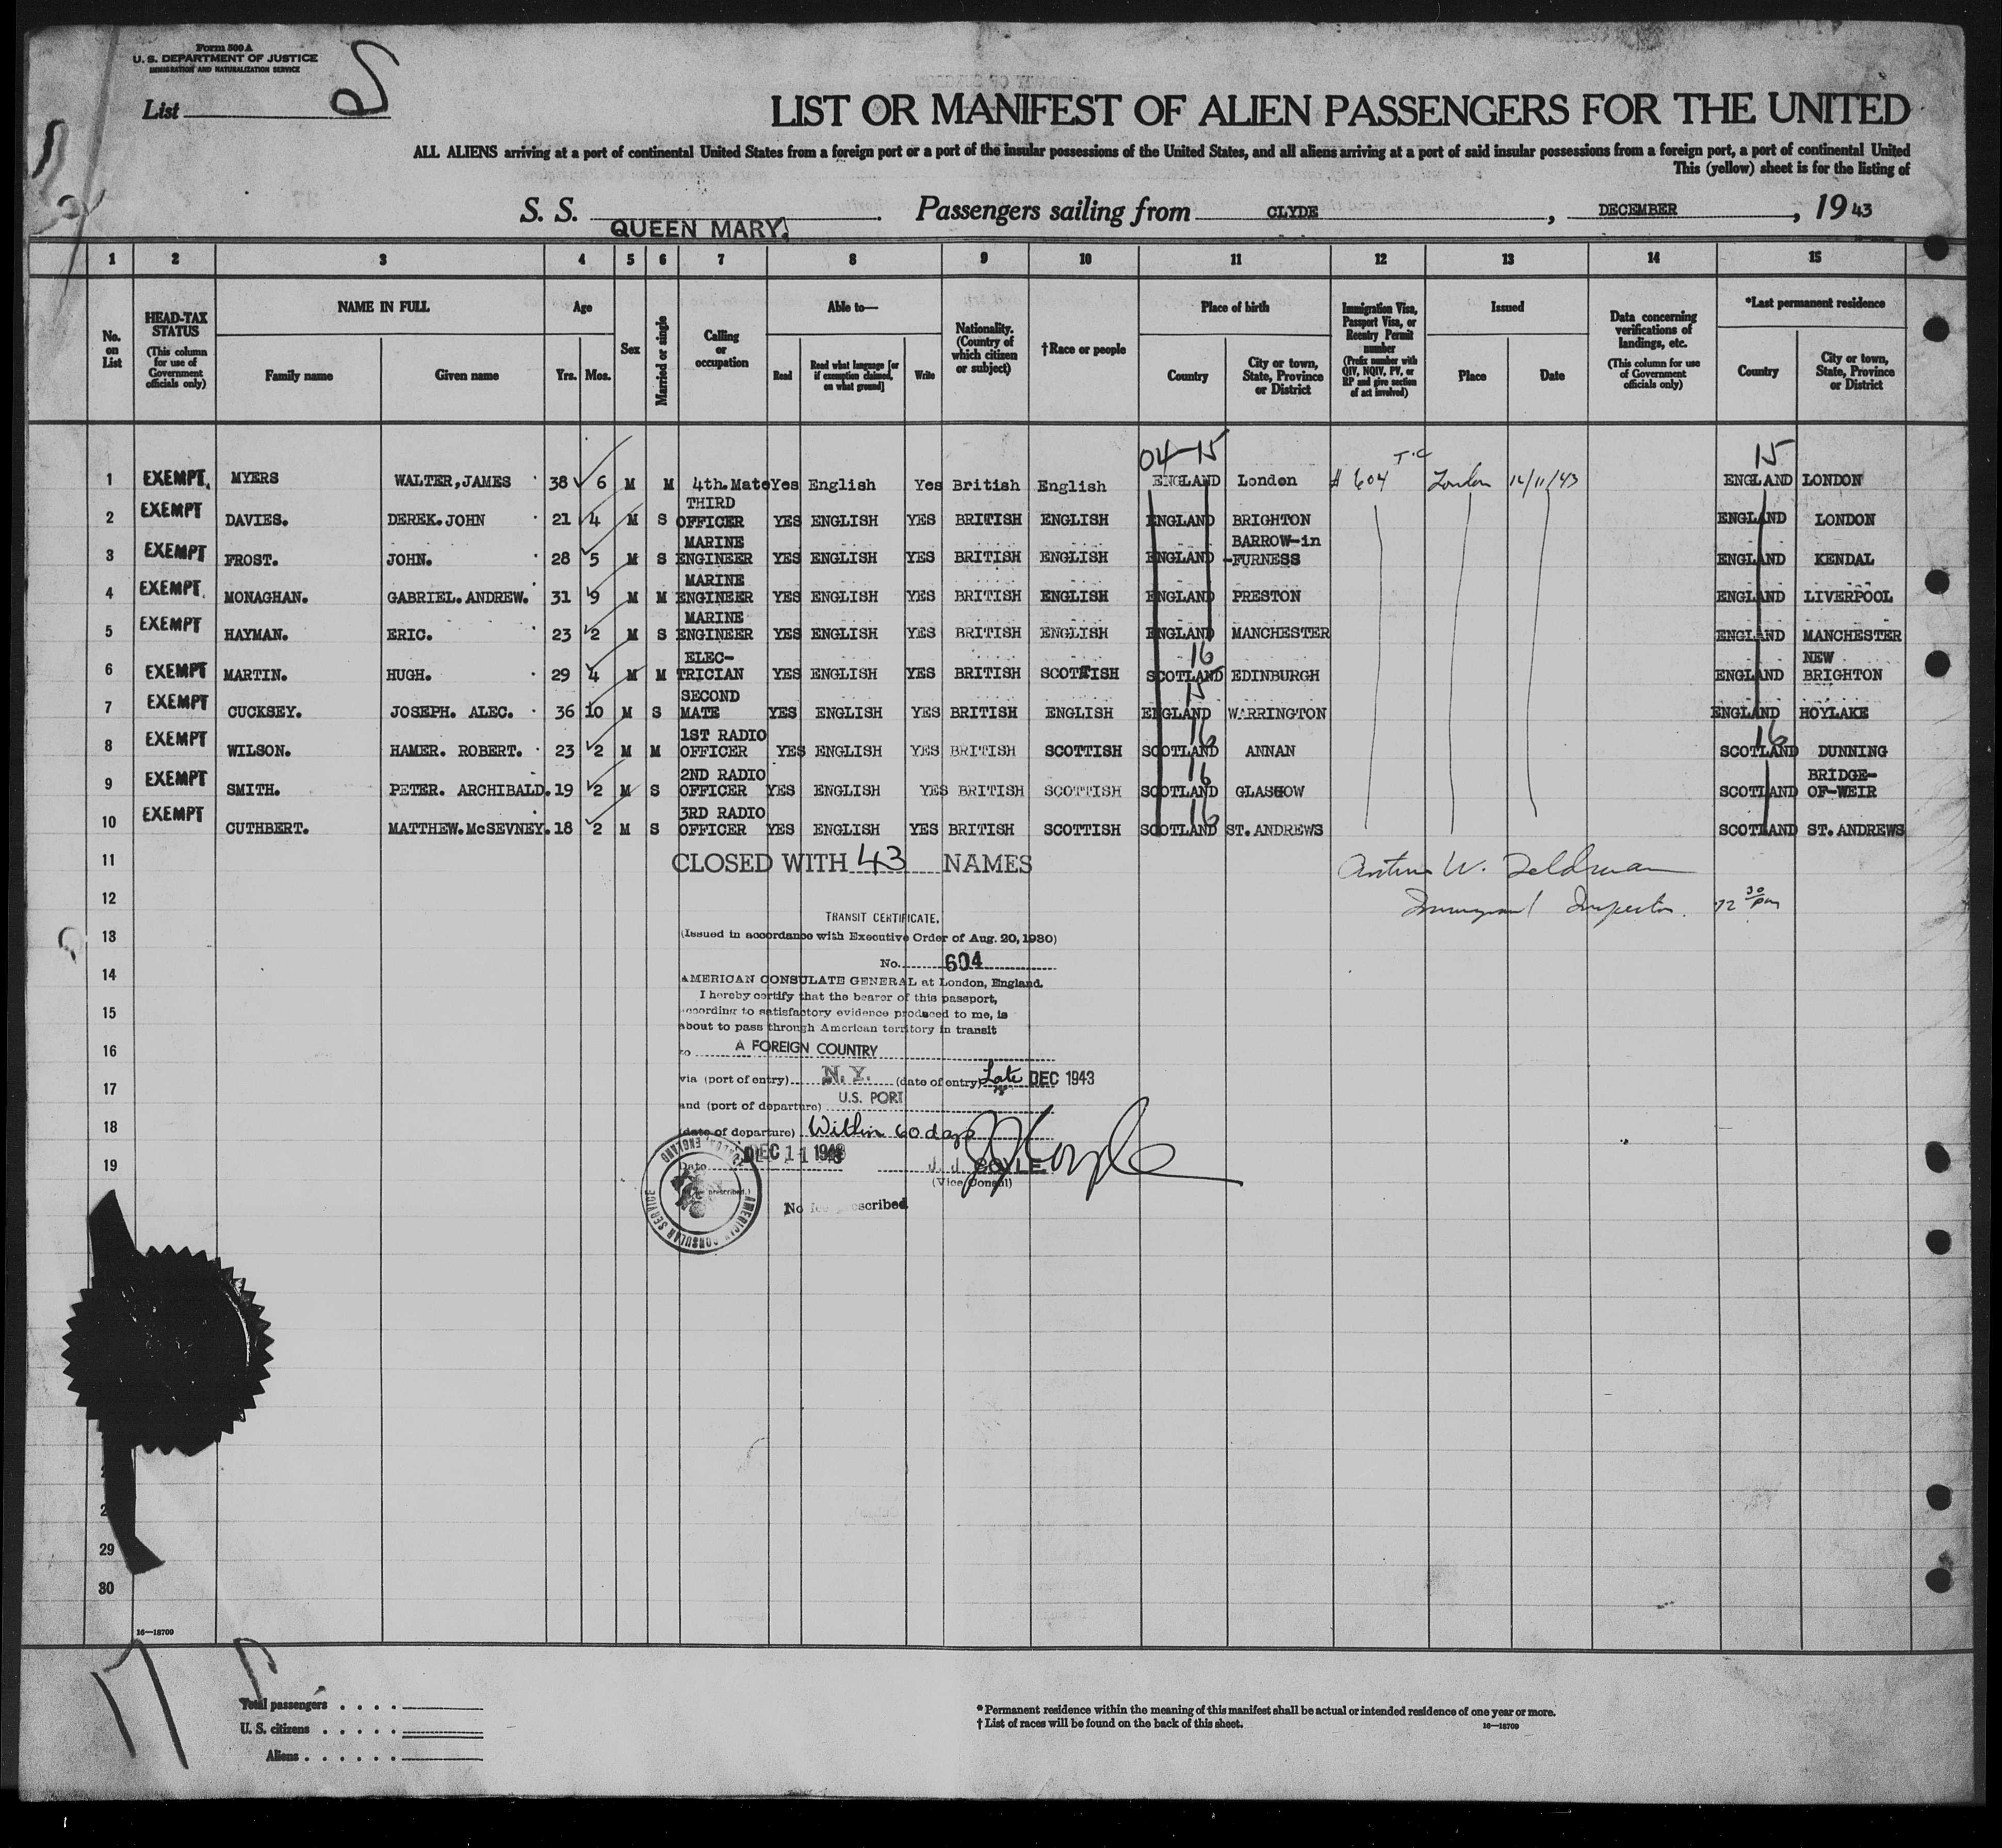 Form 500 A
U. S. DEPARTMENT OF JUSTICE
IMMIGRATION AND NATURALIZATION SERVICE
List
LIST OR MANIFEST OF ALIEN PASSENGERS FOR THE UNITED
ALL ALIENS arriving at a port of continental United States from a foreign port or a port of the insular possessions of the United States, and all aliens arriving at a port of said insular possessions from a foreign port, a port of continental United
This (yellow) sheet is for the listing of
S. S. QUEEN MARY. Passengers sailing from CLYDE, DECEMBER, 19 43
1 2 3 4 5 6 7 8 9 10 11 12 13 14 15
No. on List
HEAD-TAX STATUS (This column for use of Government officials only)
NAME IN FULL
Family name Given name
Age
Yrs. Mos.
Sex
Married or single
Calling or occupation
Able to—
Read Read what language [or if exemption claimed, on what ground] Write
Nationality. (Country of which citizen or subject)
†Race or people
Place of birth
Country City or town, State, Province or District
Immigration Visa, Passport Visa, or Reentry Permit number (Prefix number with QIV, NQIV, PV, or RP and give section of act involved)
Issued
Place Date
Data concerning verifications of landings, etc. (This column for use of Government officials only)
*Last permanent residence
Country City or town, State, Province or District
04-15 15
1 EXEMPT. MYERS WALTER,JAMES 38 6 M M 4th.Mate Yes English Yes British English ENGLAND London # 604 T.C London 12/11/43 ENGLAND LONDON
2 EXEMPT DAVIES. DEREK.JOHN 21 4 M S THIRD OFFICER YES ENGLISH YES BRITISH ENGLISH ENGLAND BRIGHTON ENGLAND LONDON
3 EXEMPT FROST. JOHN. 28 5 M S MARINE ENGINEER YES ENGLISH YES BRITISH ENGLISH ENGLAND BARROW-in-FURNESS ENGLAND KENDAL
4 EXEMPT. MONAGHAN. GABRIEL.ANDREW. 31 9 M M MARINE ENGINEER YES ENGLISH YES BRITISH ENGLISH ENGLAND PRESTON ENGLAND LIVERPOOL
5 EXEMPT HAYMAN. ERIC. 23 2 M S MARINE ENGINEER YES ENGLISH YES BRITISH ENGLISH ENGLAND MANCHESTER ENGLAND MANCHESTER
6 EXEMPT MARTIN. HUGH. 29 4 M M ELEC-TRICIAN YES ENGLISH YES BRITISH SCOTTISH 16 SCOTLAND EDINBURGH ENGLAND NEW BRIGHTON
7 EXEMPT CUCKSEY. JOSEPH. ALEC. 36 10 M S SECOND MATE YES ENGLISH YES BRITISH ENGLISH 15 ENGLAND WARRINGTON ENGLAND HOYLAKE
8 EXEMPT WILSON. HAMER. ROBERT. 23 2 M M 1ST RADIO OFFICER YES ENGLISH YES BRITISH SCOTTISH 16 SCOTLAND ANNAN 16 SCOTLAND DUNNING
9 EXEMPT SMITH. PETER. ARCHIBALD. 19 2 M S 2ND RADIO OFFICER YES ENGLISH YES BRITISH SCOTTISH 16 SCOTLAND GLASGOW SCOTLAND BRIDGE-OF-WEIR
10 EXEMPT CUTHBERT. MATTHEW.McSEVNEY. 18 2 M S 3RD RADIO OFFICER YES ENGLISH YES BRITISH SCOTTISH 16 SCOTLAND ST.ANDREWS SCOTLAND ST.ANDREWS
11 CLOSED WITH 43 NAMES W. Feldman
12 Inspector. 12 30 pm
TRANSIT CERTIFICATE.
13 (Issued in accordance with Executive Order of Aug. 20, 1930)
No. 604
14 AMERICAN CONSULATE GENERAL at London, England.
I hereby certify that the bearer of this passport,
15 according to satisfactory evidence produced to me, is
about to pass through American territory in transit
16 to A FOREIGN COUNTRY
17 via (port of entry) N.Y. (date of entry) Late DEC 1943
and (port of departure) U.S. PORT
18 (date of departure) Within 60 days
19 Date DEC 11 1943 J. J. COYLE
(Vice Consul)
No fee prescribed
AMERICAN CONSULAR SERVICE
29
30
16—18709
Total passengers . . . .
U. S. citizens . . . . .
Aliens . . . . . .
* Permanent residence within the meaning of this manifest shall be actual or intended residence of one year or more.
† List of races will be found on the back of this sheet. 16—18709